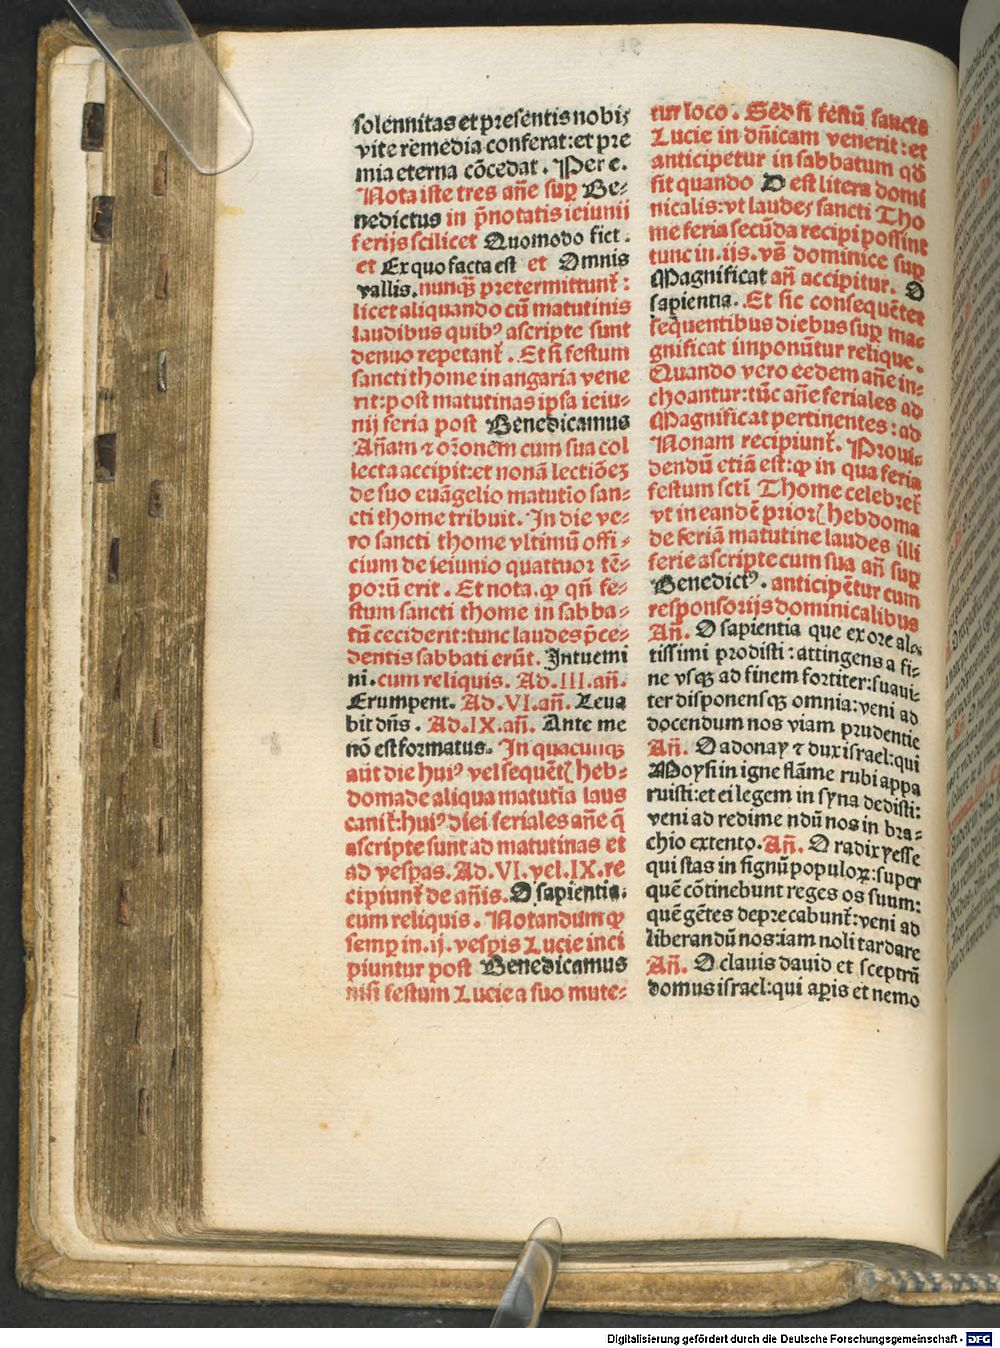 solennitas et presentis nobis
vite remedia conferat: et pre
mia eterna cõcedat. Per e.
Nota iste tres añe sup Be-
nedictus in p̃notatis ieiunij
ferijs scilicet Quomodo fiet.
et Ex quo facta est et Omnis
vallis. nunq̃ pretermittunt̃:
licet aliquando cũ matutinis
laudibus quibꝰ ascripte sunt
denuo repetant̃. Et si festum
sancti thome in angaria vene
rit: post matutinas ipsa ieiu-
nij feria post Benedicamus
Añam ⁊ oꝛõnem cum sua col
lecta accipit: et nonã lectiõeꝫ
de suo euãgelio matutio san-
cti thome tribuit. In die ve-
ro sancti thome vltimũ offi-
cium de ieiunio quattuor tẽ-
porũ erit. Et nota. ꝙ qñ fe-
stum sancti thome in sabba-
tũ ceciderit: tunc laudes p̃ce-
dentis sabbati erũt. Intuemi
ni. cum reliquis. Ad .III. añ.
Erumpent. Ad .VI. añ. Leua
bit dñs. Ad .IX. añ. Ante me
nõ est formatus. In quacunqꝫ
aũt die huiꝰ vel sequẽtꝭ heb-
domade aliqua matutĩa laus
canit̃: huiꝰ diei feriales añe q̃
ascripte sunt ad matutinas et
ad vesꝑas. Ad .VI. vel .IX. re
cipiunt̃ de añis. O sapientia.
cum reliquis. Notandum ꝙ
semꝑ in .ij. vesꝑis Lucie inci
piuntur post Benedicamus
nisi festum Lucie a suo mute-
tur loco. Sed si festũ sancte
Lucie in dñicam venerit: et
anticipetur in sabbatum qð
fit quando D est litera domi
nicalis: vt laudes sancti Tho
me feria secũda recipi possint
tunc in .ijs. vẽ dominice sup
Magnificat añ accipitur. O
sapientia. Et sic consequẽter
sequentibus diebus sup ma-
gnificat imponũtur relique.
Quando vero eedem añe in-
choantur: tũc añe feriales ad
Magnificat pertinentes: ad
Nonam recipiunt̃. Proui-
dendũ etiã est: ꝙ in qua feria
festum scti Thome celebret̃
vt in eandẽ priorꝭ hebdoma
de feriã matutine laudes illi
ferie ascripte cum sua añ sup
Benedictꝰ. anticipẽtur cum
responsorijs dominicalibus
Añ. O sapientia que ex ore al-
tissimi prodisti: attingens a fi-
ne vsqꝫ ad finem fortiter: suaui-
ter disponensqꝫ omnia: veni ad
docendum nos viam prudentie
Añ. O adonay ⁊ dux israel: qui
Moysi in igne flãme rubi appa
ruisti: et ei legem in syna dedisti:
veni ad redimendũ nos in bra-
chio extento. Añ. O radix yesse
qui stas in signũ populoꝝ: super
quẽ cõtinebunt reges os suum:
quẽ gẽtes deprecabunt̃: veni ad
liberandũ nos: iam noli tardare
Añ. O clauis dauid et sceptrũ
domus israel: qui aꝑis et nemo
Digitalisierung gefördert durch die Deutsche Forschungsgemeinschaft - DFG